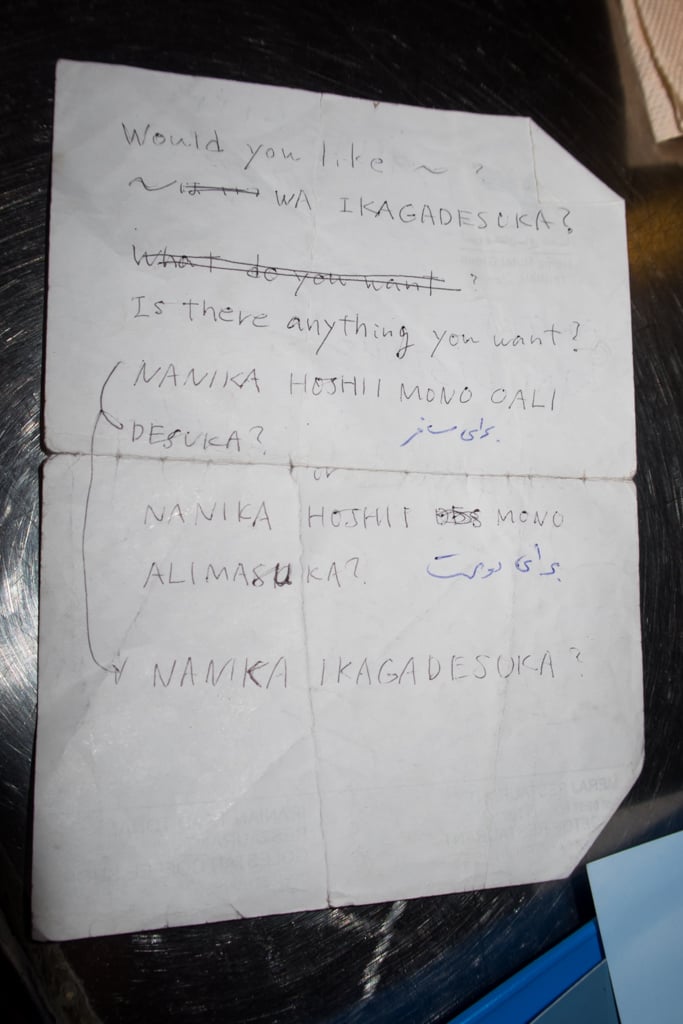 Would you like ~ ?
~ はいい WA IKAGADESUKA?
What do you want ?
Is there anything you want?
NANIKA HOSHII MONO OALI
DESUKA?
برای مسافر
or
NANIKA HOSHII MONO
ALIMASUKA?
برای دوست
NANIKA IKAGADESUKA?